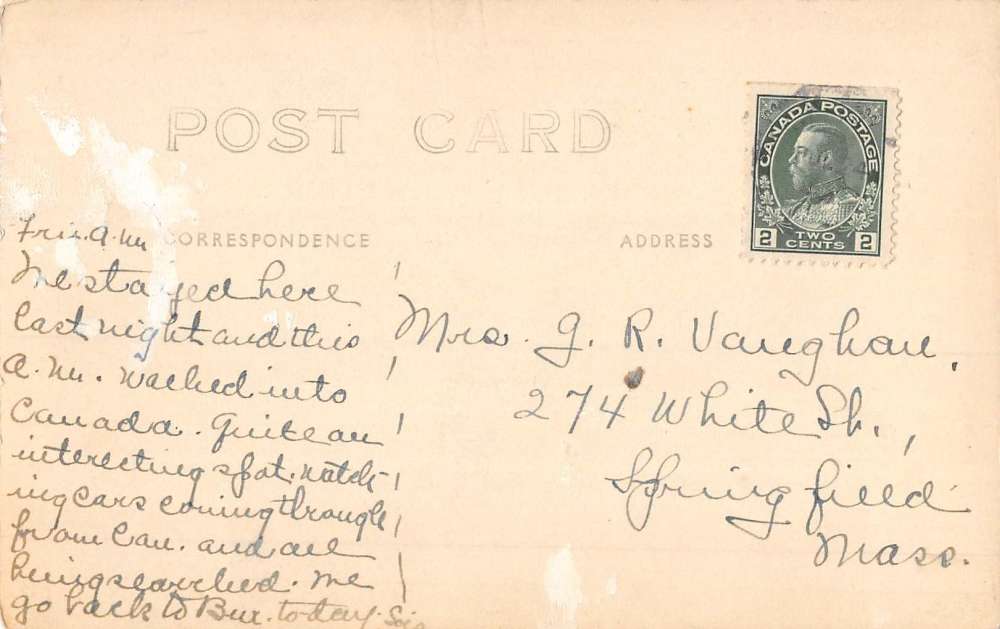 POST CARD
CANADA POSTAGE
2 TWO CENTS 2
CORRESPONDENCE
ADDRESS
Fri. A.M.
We stayed here
last night and this
A.M. walked into
Canada. Quite an
interesting spot. watch-
ing cars coming through
from Can. and all
being searched. We
go back to Bur. to-day.
Mrs. G. R. Vaughan,
274 White St.,
Springfield
Mass.